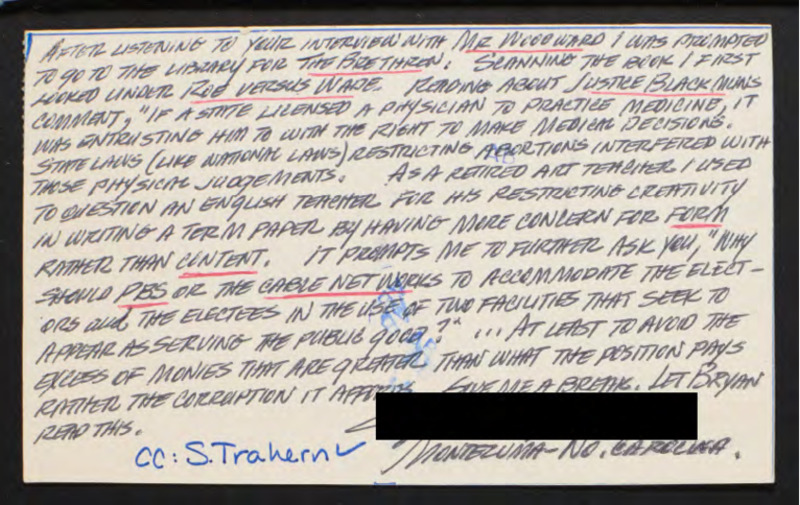 AFTER LISTENING TO YOUR INTERVIEW WITH MR WOODWARD I WAS PROMPTED
TO GO TO THE LIBRARY FOR THE BRETHREN. SCANNING THE BOOK I FIRST
LOOKED UNDER ROE VERSUS WADE. READING ABOUT JUSTICE BLACKMUNS
COMMENT, "IF A STATE LICENSED A PHYSICIAN TO PRACTICE MEDICINE, IT
WAS ENTRUSTING HIM TO WITH THE RIGHT TO MAKE MEDICAL DECISIONS.
STATE LAWS (LIKE NATIONAL LAWS) RESTRICTING ABORTIONS INTERFERED WITH
THOSE PHYSICAL JUDGEMENTS. AS A RETIRED ART TEACHER I USED
TO QUESTION AN ENGLISH TEACHER FOR HIS RESTRICTING CREATIVITY
IN WRITING A TERM PAPER BY HAVING MORE CONCERN FOR FORM
RATHER THAN CONTENT. IT PROMPTS ME TO FURTHER ASK YOU, "WHY
SHOULD PBS OR THE CABLE NETWORKS TO ACCOMMODATE THE ELECT-
ORS THE ELECTEES IN THE USE OF TWO FACILITIES THAT SEEK TO
APPEAR AS SERVING THE PUBLIC GOOD?" ... AT LEAST TO AVOID THE
EXCESS OF MONIES THAT ARE GREATER THAN WHAT THE POSITION PAYS
RATHER THE CORRUPTION IT GIVE ME A BREAK. LET BRYAN
READ THIS.
MONTEZUMA - NO. CAROLINA.
CC: S. Trahern ✓